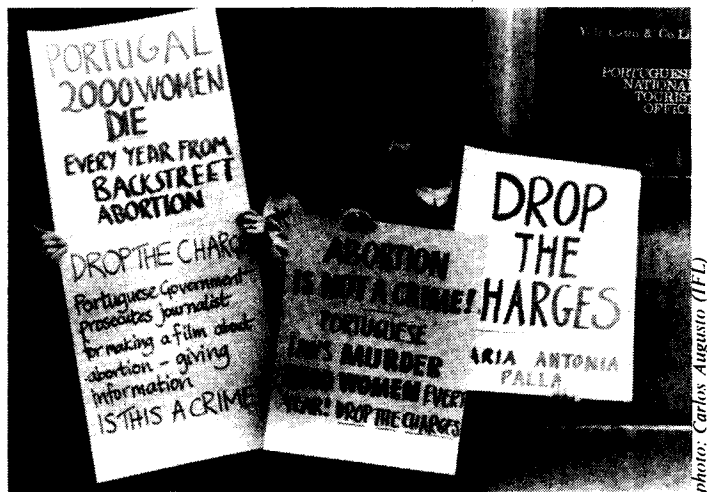 PORTUGAL
2000 WOMEN
DIE
EVERY YEAR FROM
BACKSTREET
ABORTION
DROP THE CHARG
Portuguese Government
prosecutes journalist
for making a film about
abortion - giving
information
IS THIS A CRIME
ABORTION
IS NOT A CRIME!
PORTUGUESE
LAWS MURDER
2000 WOMEN EVERY
YEAR! DROP THE CHARGES
DROP
THE
HARGES
ARIA ANTONIA
PALLA
& Co
PORTUGUESE
NATIONAL
TOURIST
OFFICE
photo: Carlos Augusto (IFL)